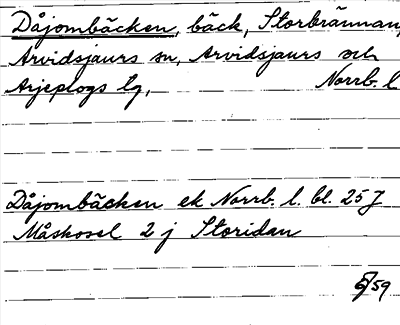 Dåjombäcken, bäck, Storbrännan,
Arvidsjaurs sn, Arvidsjaurs och
Arjeplogs tg, Norrb. l
Dåjombäcken ek Norrb. l. bl. 25 J
Måskosel 2 j Storidan
59